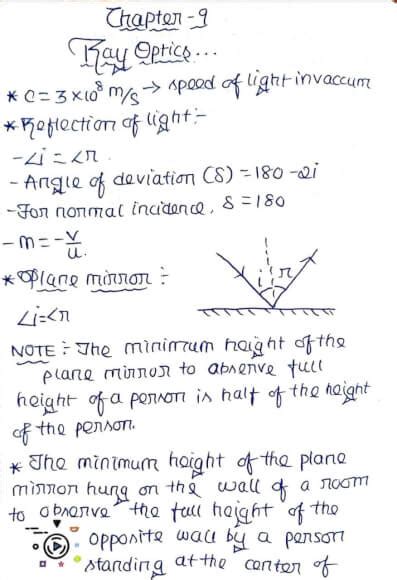 Chapter-9
Ray Optics...
* C = 3×10⁸ m/s → speed of light in vaccum
* Reflection of light:-
- ∠i = ∠r.
- Angle of deviation (δ) = 180 - 2i
- For normal incidence, δ = 180
- m = -v/u.
* Plane mirror :-
i r
∠i = ∠r
NOTE :- The minimum height of the
plane mirror to observe full
height of a person is half of the height
of the person.
* The minimum height of the plane
mirror hung on the wall of a room
to observe the full height of the
opposite wall by a person
standing at the center of